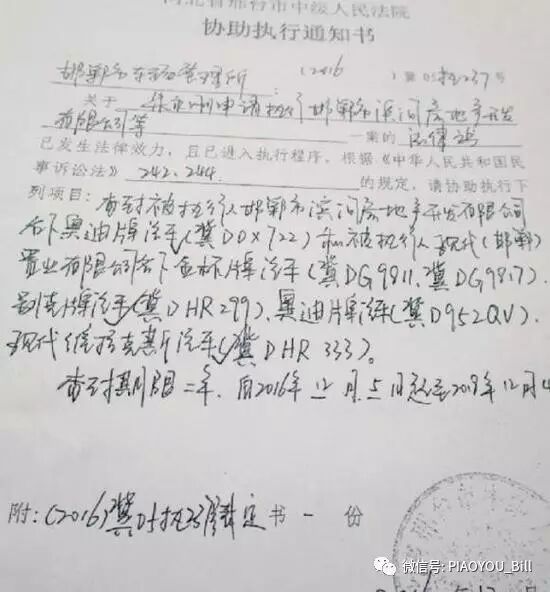 河北省邯郸市中级人民法院
协助执行通知书
邯郸市车辆管理所 (2016) 冀05执237号
关于 申请执行邯郸市滨河房地产开发
有限公司等 一案的 法律
已发生法律效力，且已进入执行程序，根据《中华人民共和国民
事诉讼法》242、244 的规定，请协助执行下
列项目：查封被执行人邯郸市滨河房地产开发有限公司
名下奥迪牌汽车(冀D0X722)和被执行人现代(邯郸)
置业有限公司名下金杯牌汽车(冀DG9811、冀DG9817)、
别克牌汽车(冀DHR299)、奥迪牌汽车(冀D952QV)、
现代维拉克斯汽车(冀DHR333)。
查封期限二年，自2016年12月5日起至2019年12月4
附：(2016)冀 执 裁定书一份
微信号: PIAOYOU_Bill